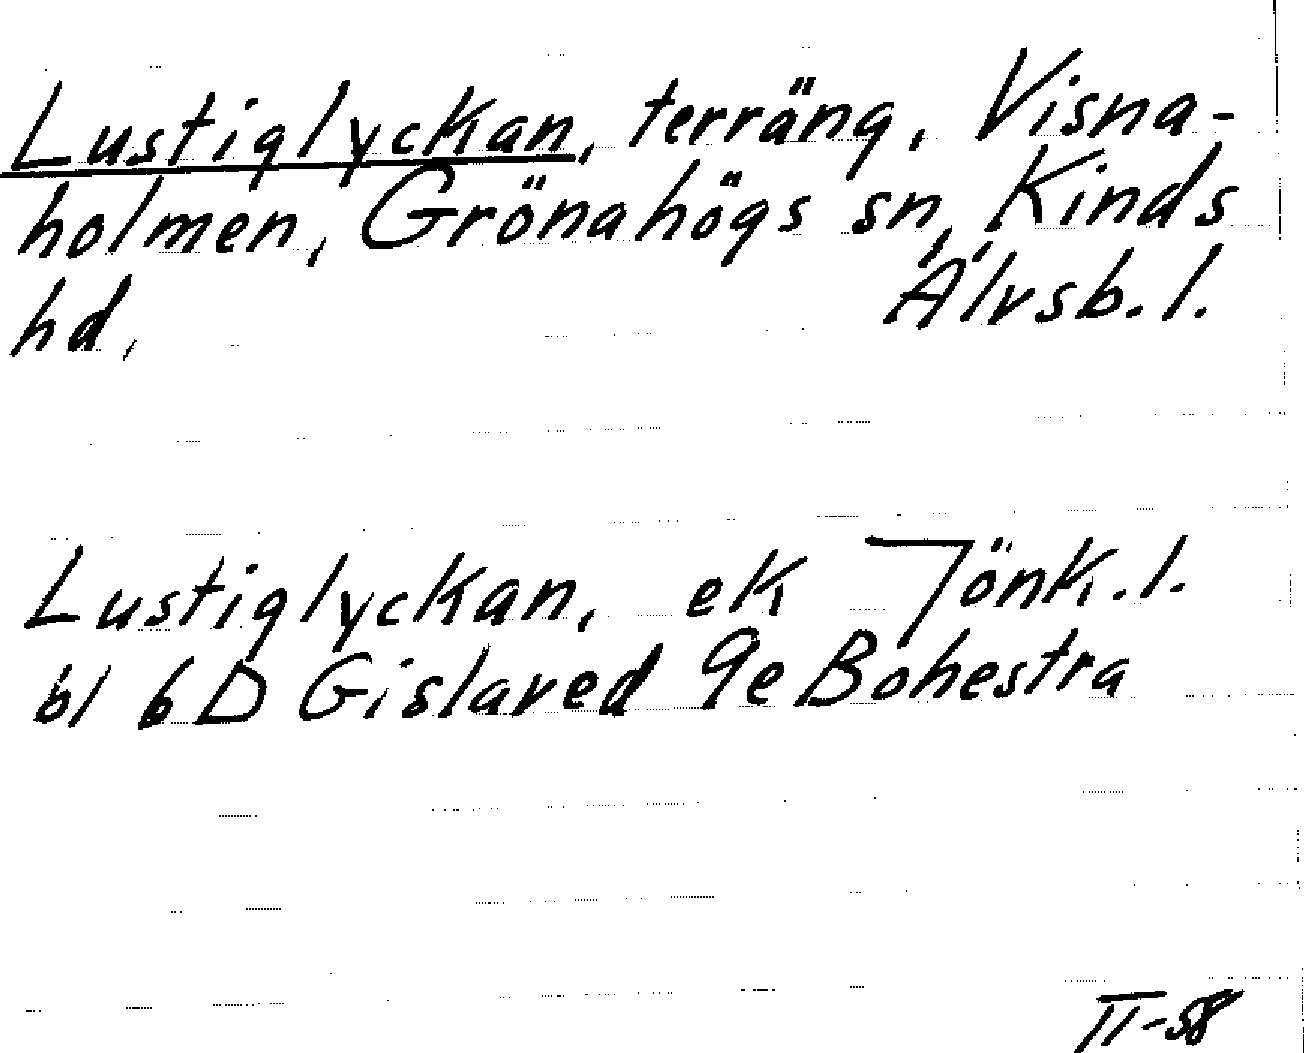 Lustiglyckan, terräng, Visna-
holmen, Grönahögs sn, Kinds
hd, Älvsb. l.
Lustiglyckan, ek Jönk. l.
bl 6D Gislaved 9e Bohestra
II-58